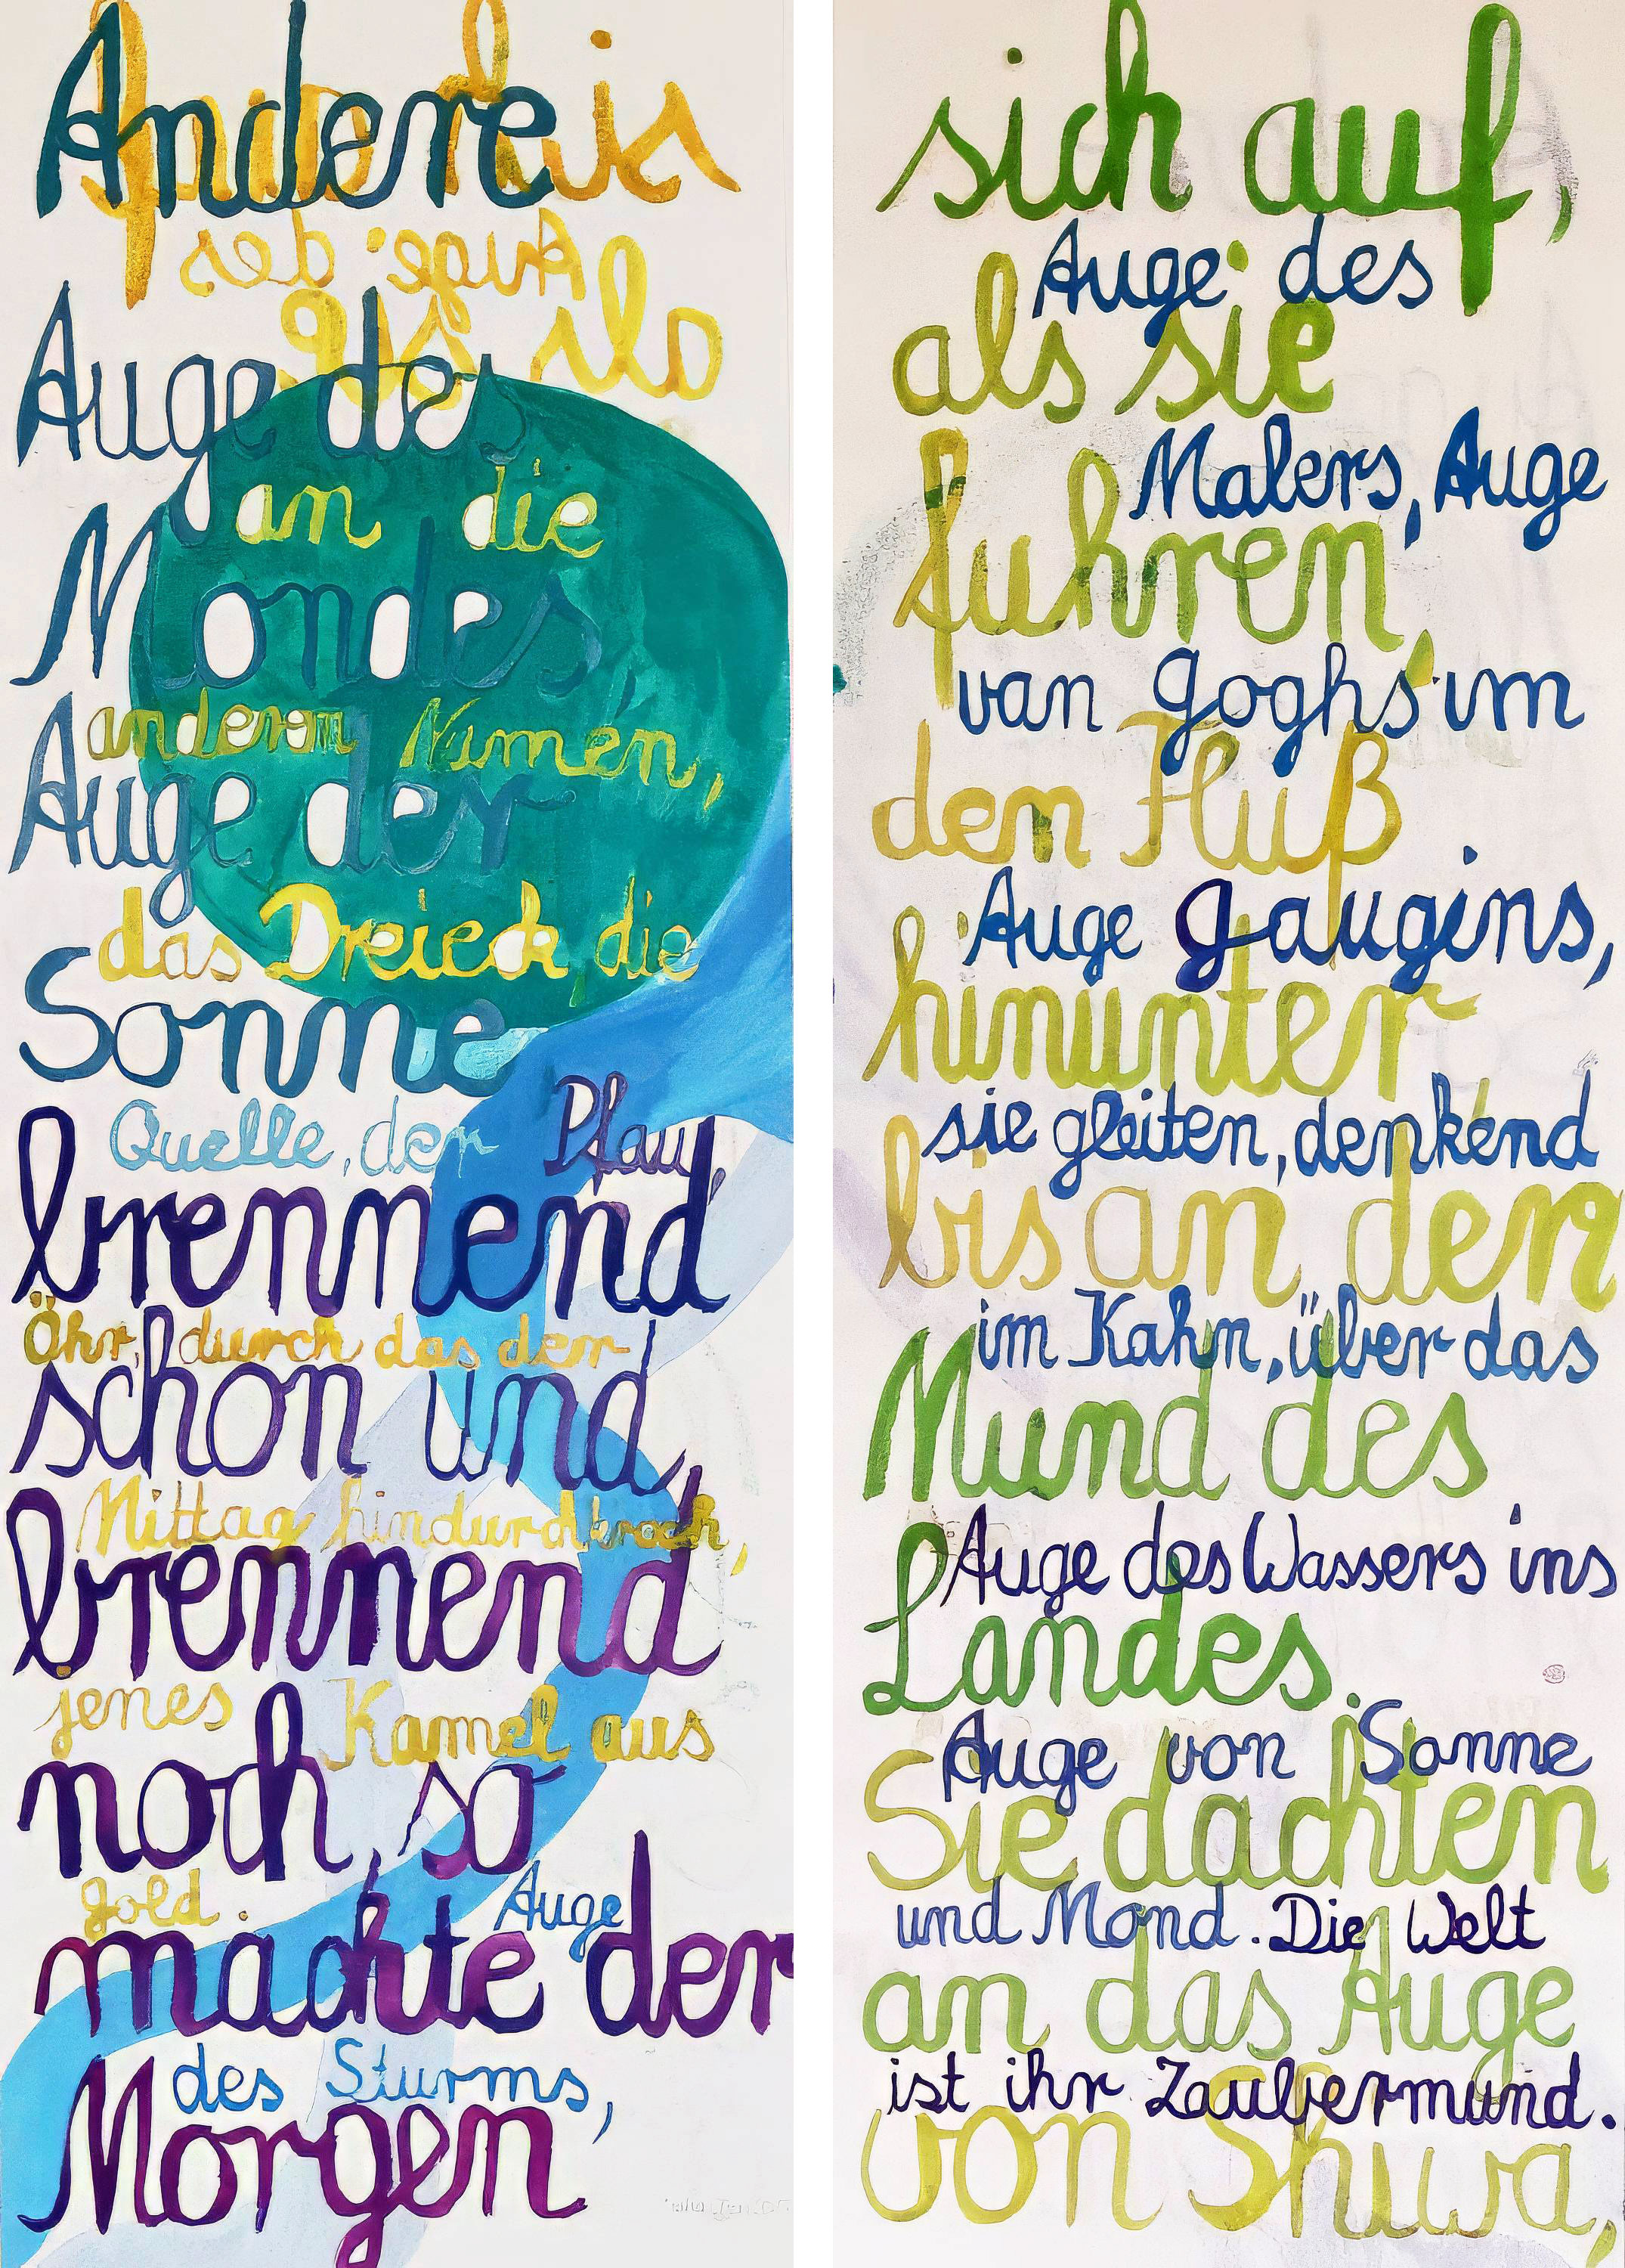 Andere
Auge des
an die
Mondes,
anderen Namen,
Auge der
das Dreieck, die
Sonne
Quelle, der Pfau,
brennend
Öhr, durch das der
schon und,
Mittag hindurchkroch,
brennend
jenes Kamel aus
noch, so
Gold. Auge
machte der
des Sturms,
Morgen
sich auf,
Auge des
als sie
Malers, Auge
fuhren,
van Goghs im
den Fluß
Auge Gaugins,
hinunter
sie gleiten, denkend
bis an den
im Kahn, über das
Mund des
Auge des Wassers ins
Landes.
Auge von Sonne
Sie dachten
und Mond. Die Welt
an das Auge
ist ihr Zaubermund.
von Shiwa,